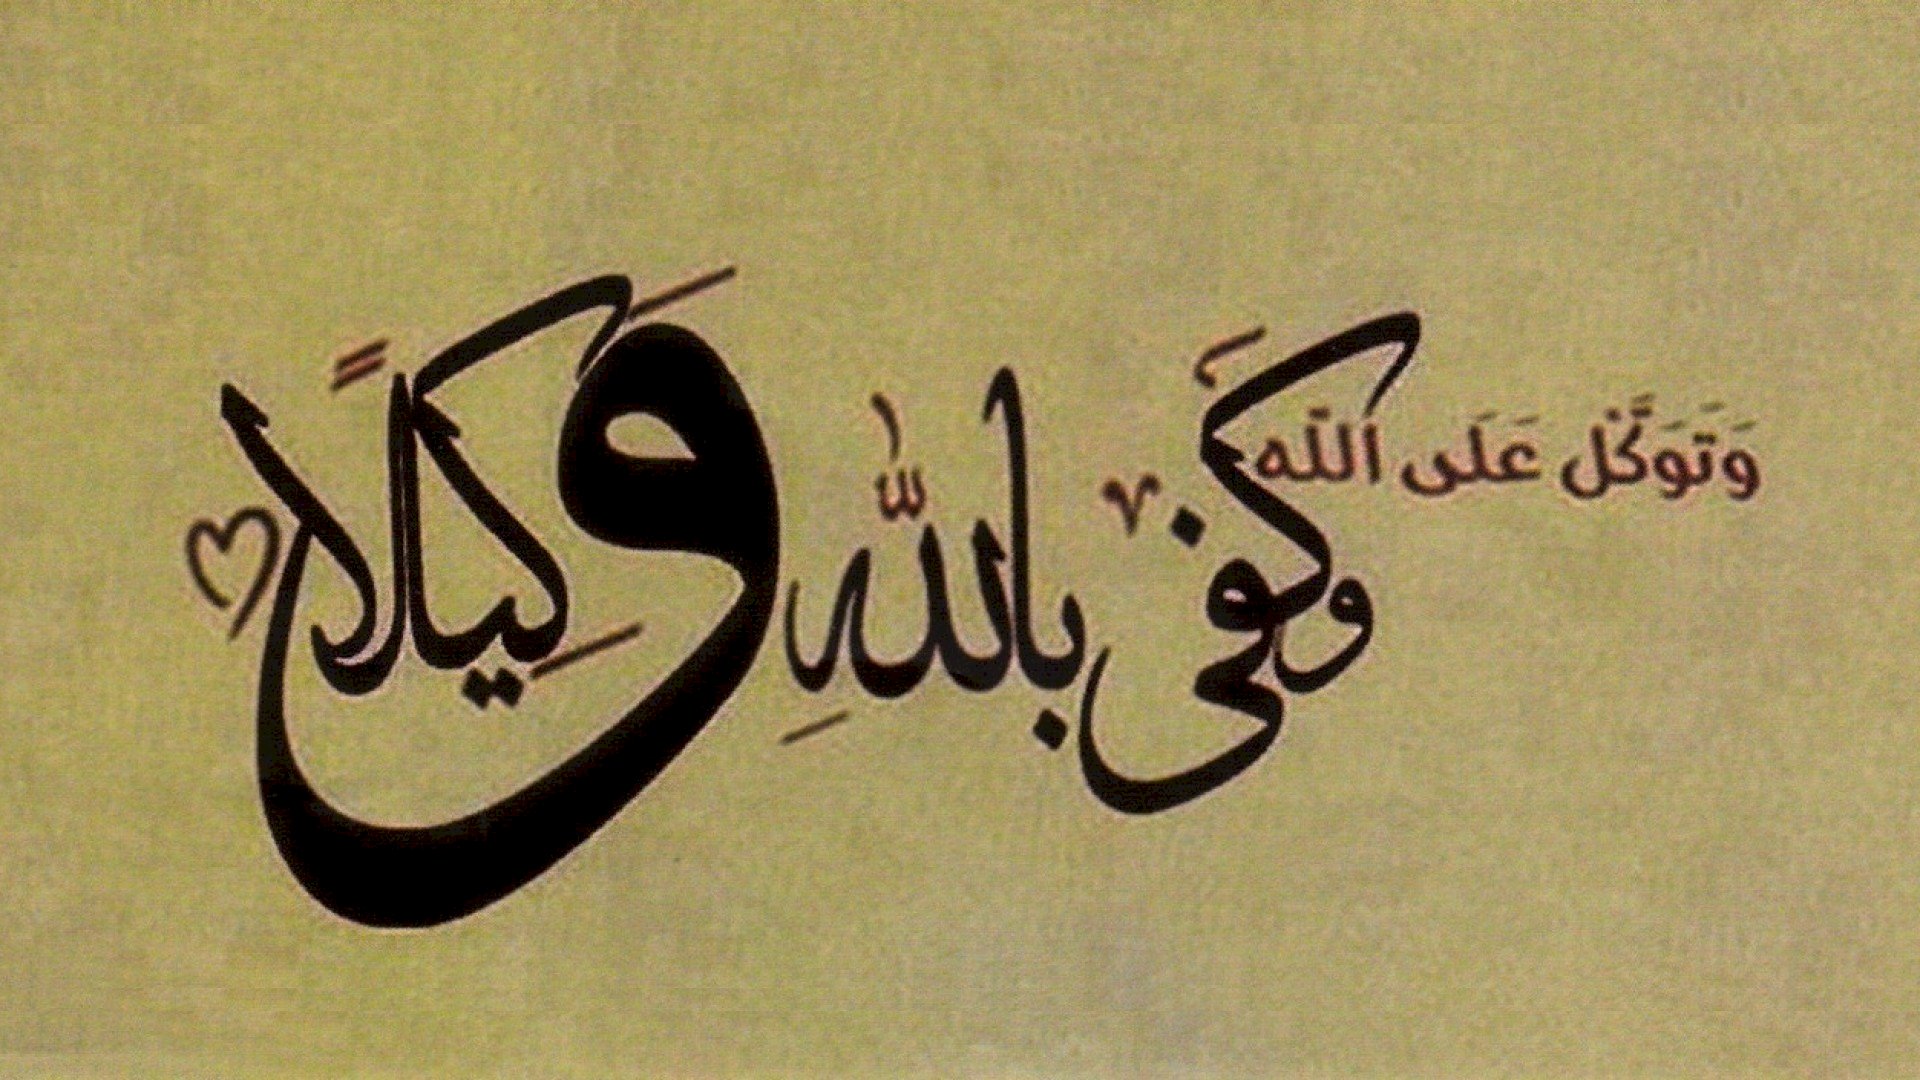 وَتَوَكَّلْ عَلَى اللَّه
وَكفى باللّهِ وَكِيلًا